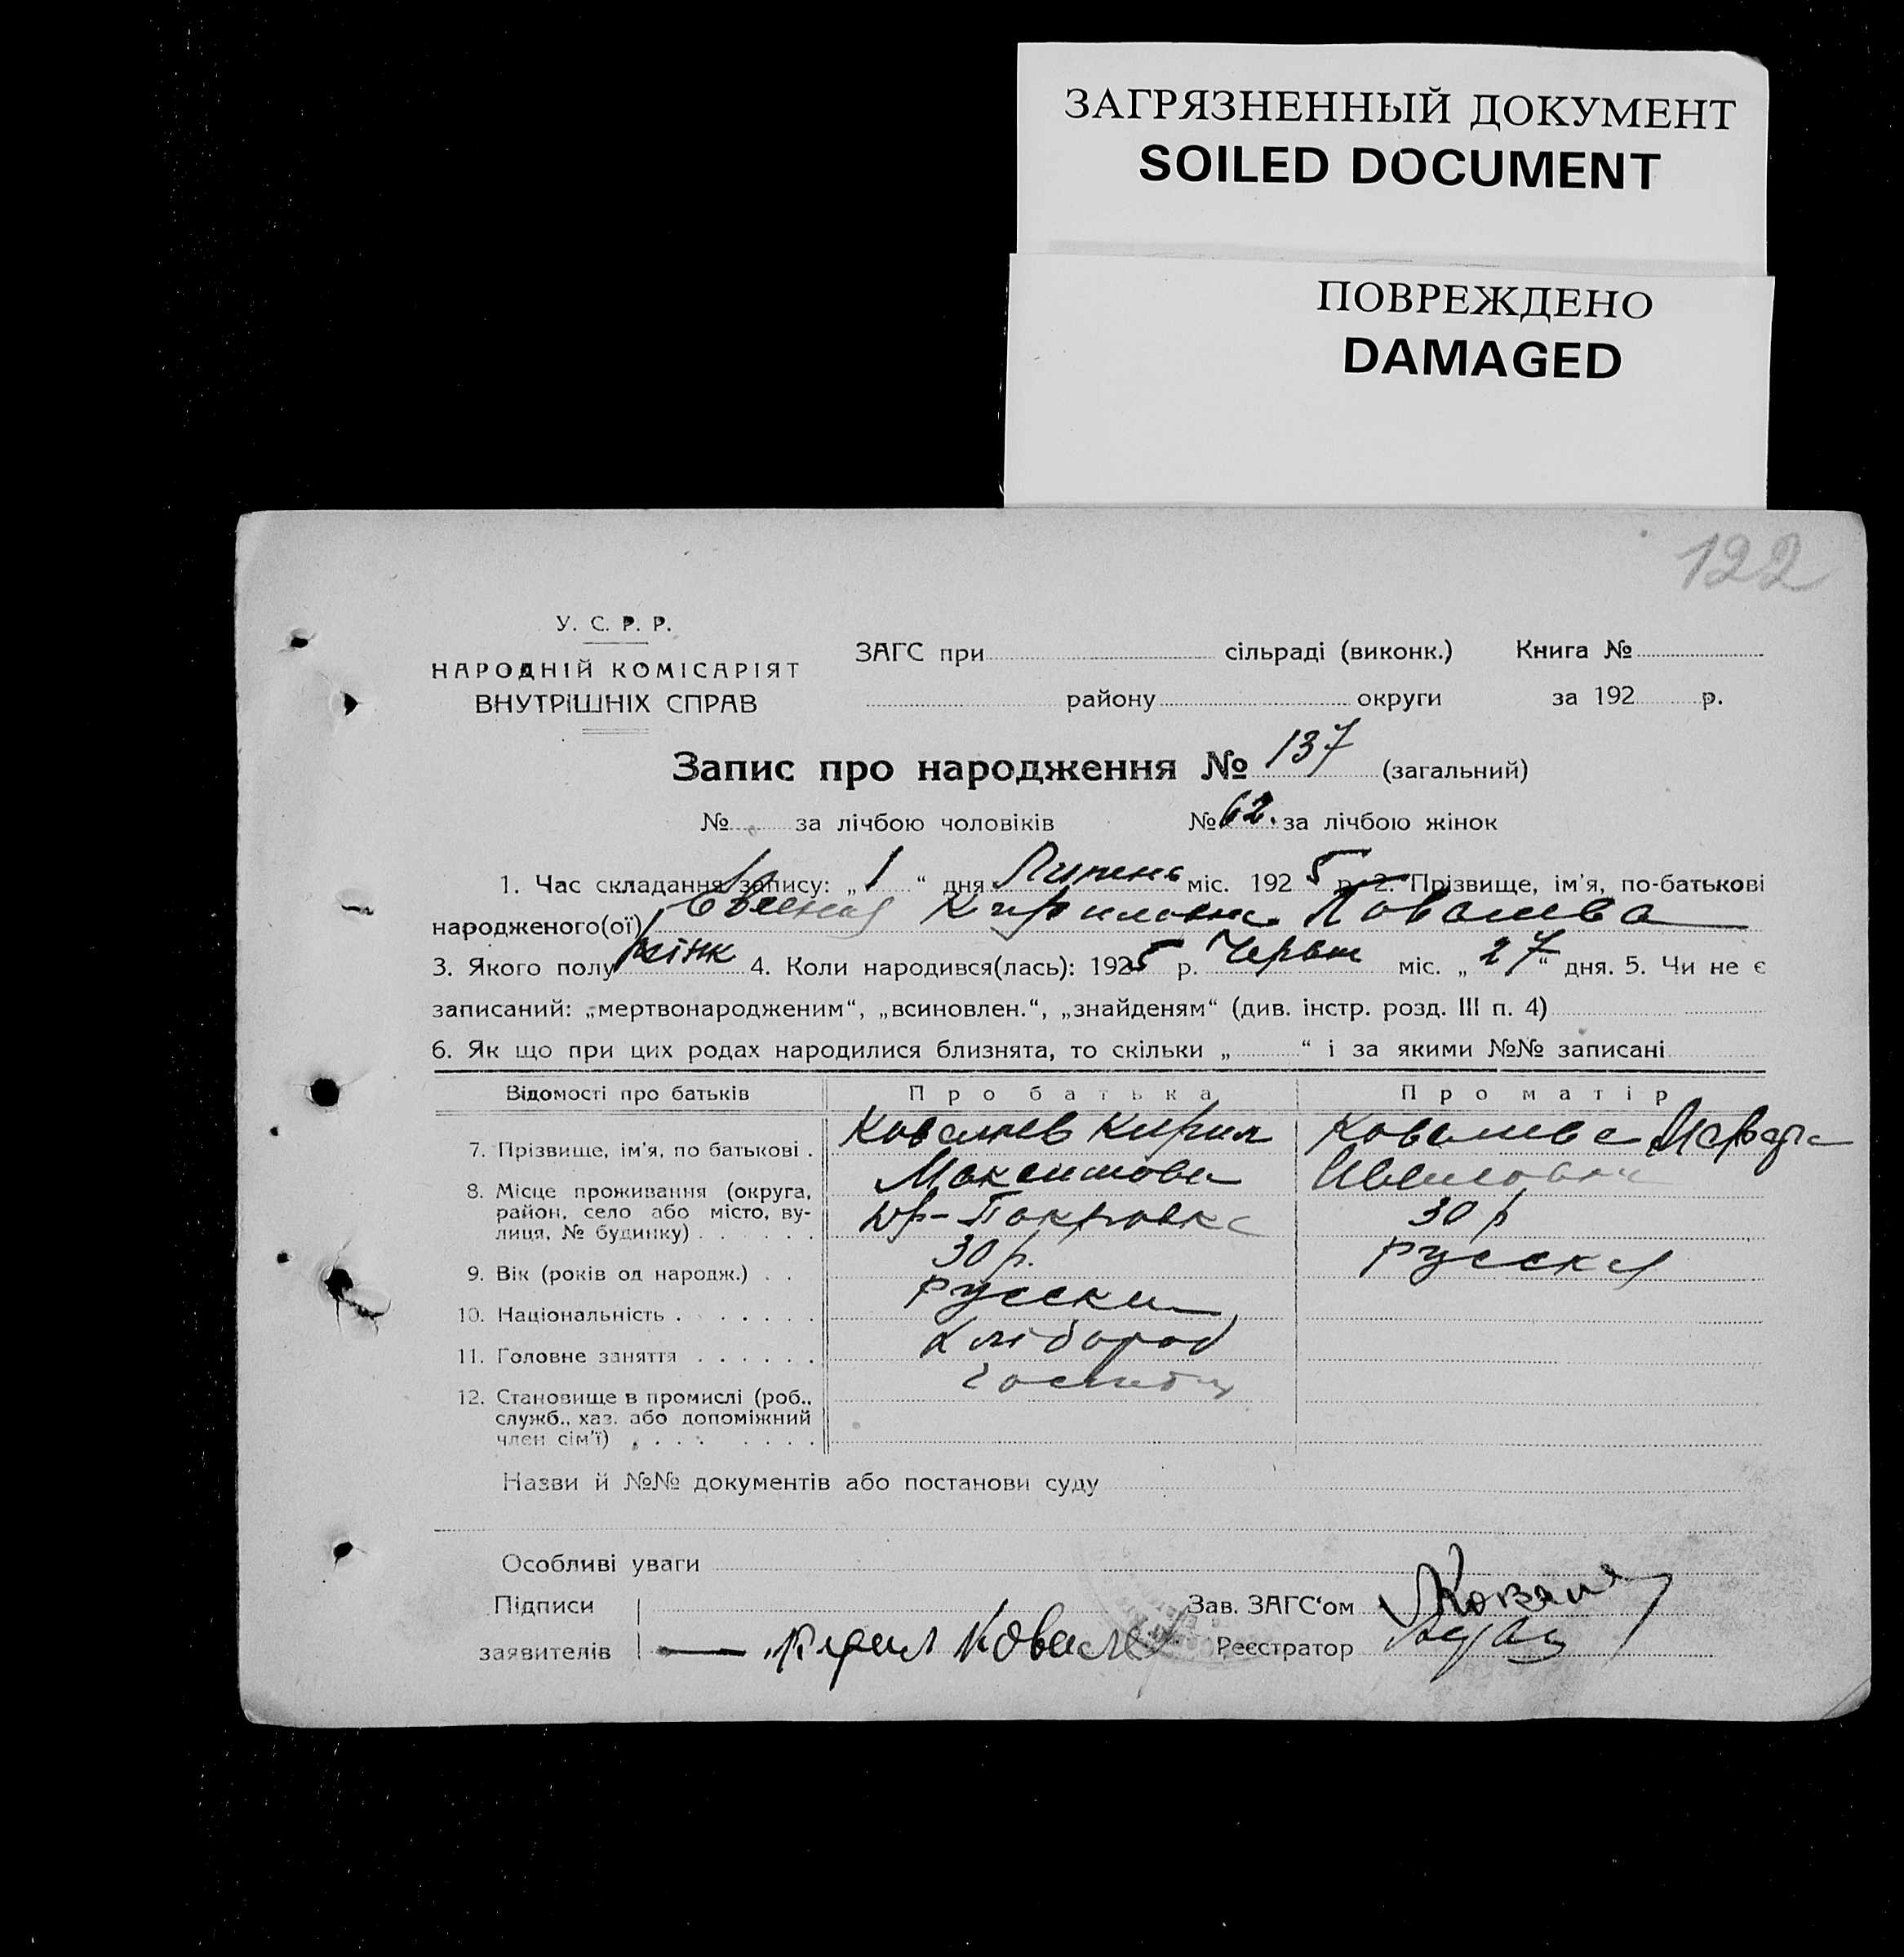 ЗАГРЯЗНЕННЫЙ ДОКУМЕНТ
SOILED DOCUMENT
ПОВРЕЖДЕНО
DAMAGED
122
У. С. Р. Р.
НАРОДНІЙ КОМІСАРІЯТ
ВНУТРІШНІХ СПРАВ
ЗАГС при сільраді (виконк.) Книга №
району округи за 192 р.
Запис про народження № 137 (загальний)
№ за лічбою чоловіків № 62. за лічбою жінок
1. Час складання запису: „1“ дня Липень міс. 1925 р. 2. Прізвище, ім'я, по-батькові
народженого(ої) Кириловна Ковалева
3. Якого полу жінк 4. Коли народився(лась): 1925 р. Червня міс. „27“ дня. 5. Чи не є
записаний: „мертвонародженим“, „всиновлен.“, „знайденям“ (див. інстр. розд. III п. 4)
6. Як що при цих родах народилися близнята, то скільки „ “ і за якими №№ записані
Відомості про батьків Про батька Про матір
7. Прізвище, ім'я, по батькові . Ковалев Кирил Ковалева
Максимови Ивановна
8. Місце проживання (округа, район, село або місто, вулиця, № будинку) . . . . . . Покровка 30 р
9. Вік (років од народж.) . . 30 р. русска
10. Національність . . . . . . русски
11. Головне заняття . . . . . . хлібороб
12. Становище в промислі (роб., служб., хаз. або допоміжний член сім'ї) . . . . . . . .
Назви й №№ документів або постанови суду
Особливі уваги
Підписи Зав. ЗАГС'ом
заявителів Кирил Ковалев Реєстратор